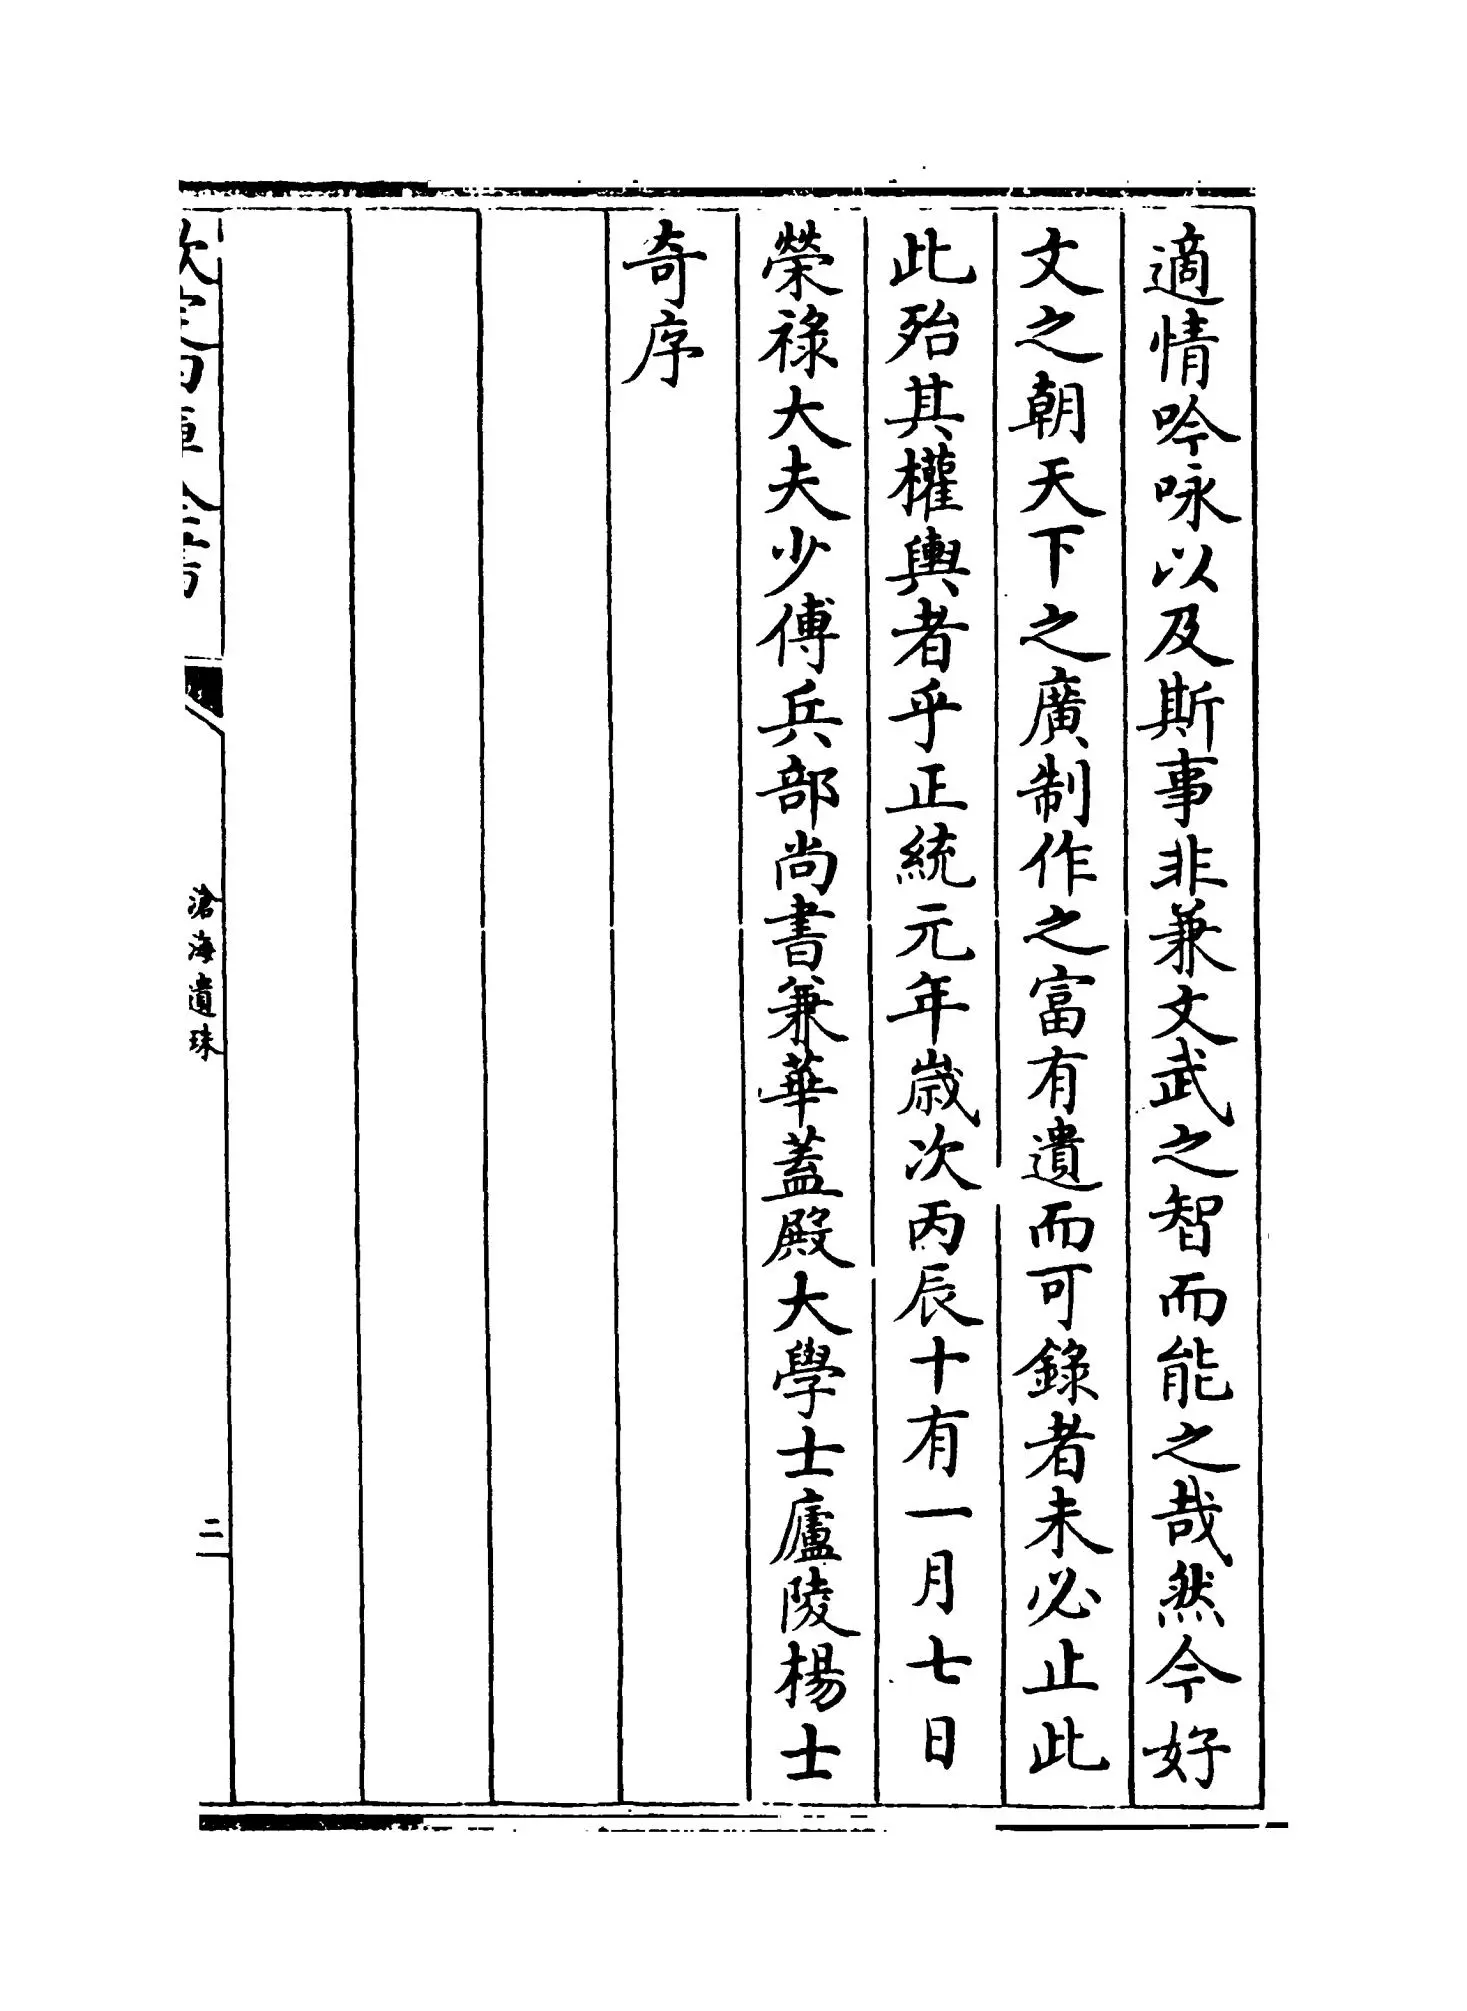 適情吟咏以及斯事非兼文武之智而能之哉然今好
文之朝天下之廣制作之富有遺而可錄者未必止此
此殆其權輿者乎正統元年歲次丙辰十有一月七日
榮祿大夫少傅兵部尚書兼華蓋殿大學士廬陵楊士
奇序
欽定四庫全書
滄海遺珠
二